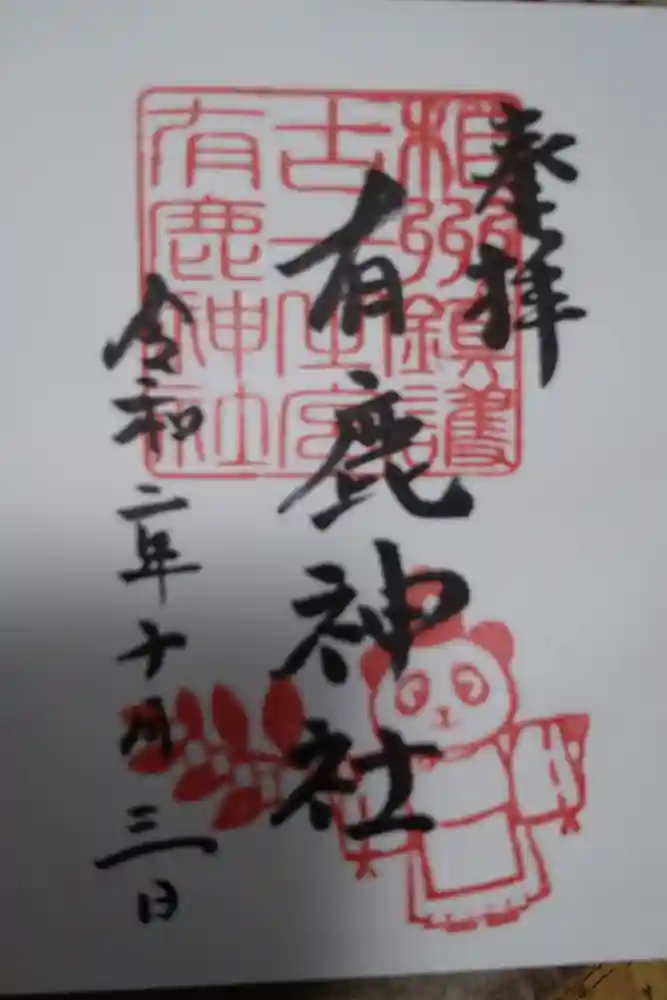 奉拝
有鹿神社
令和二年十月三日
相模鎮護
古一之宮
有鹿神社